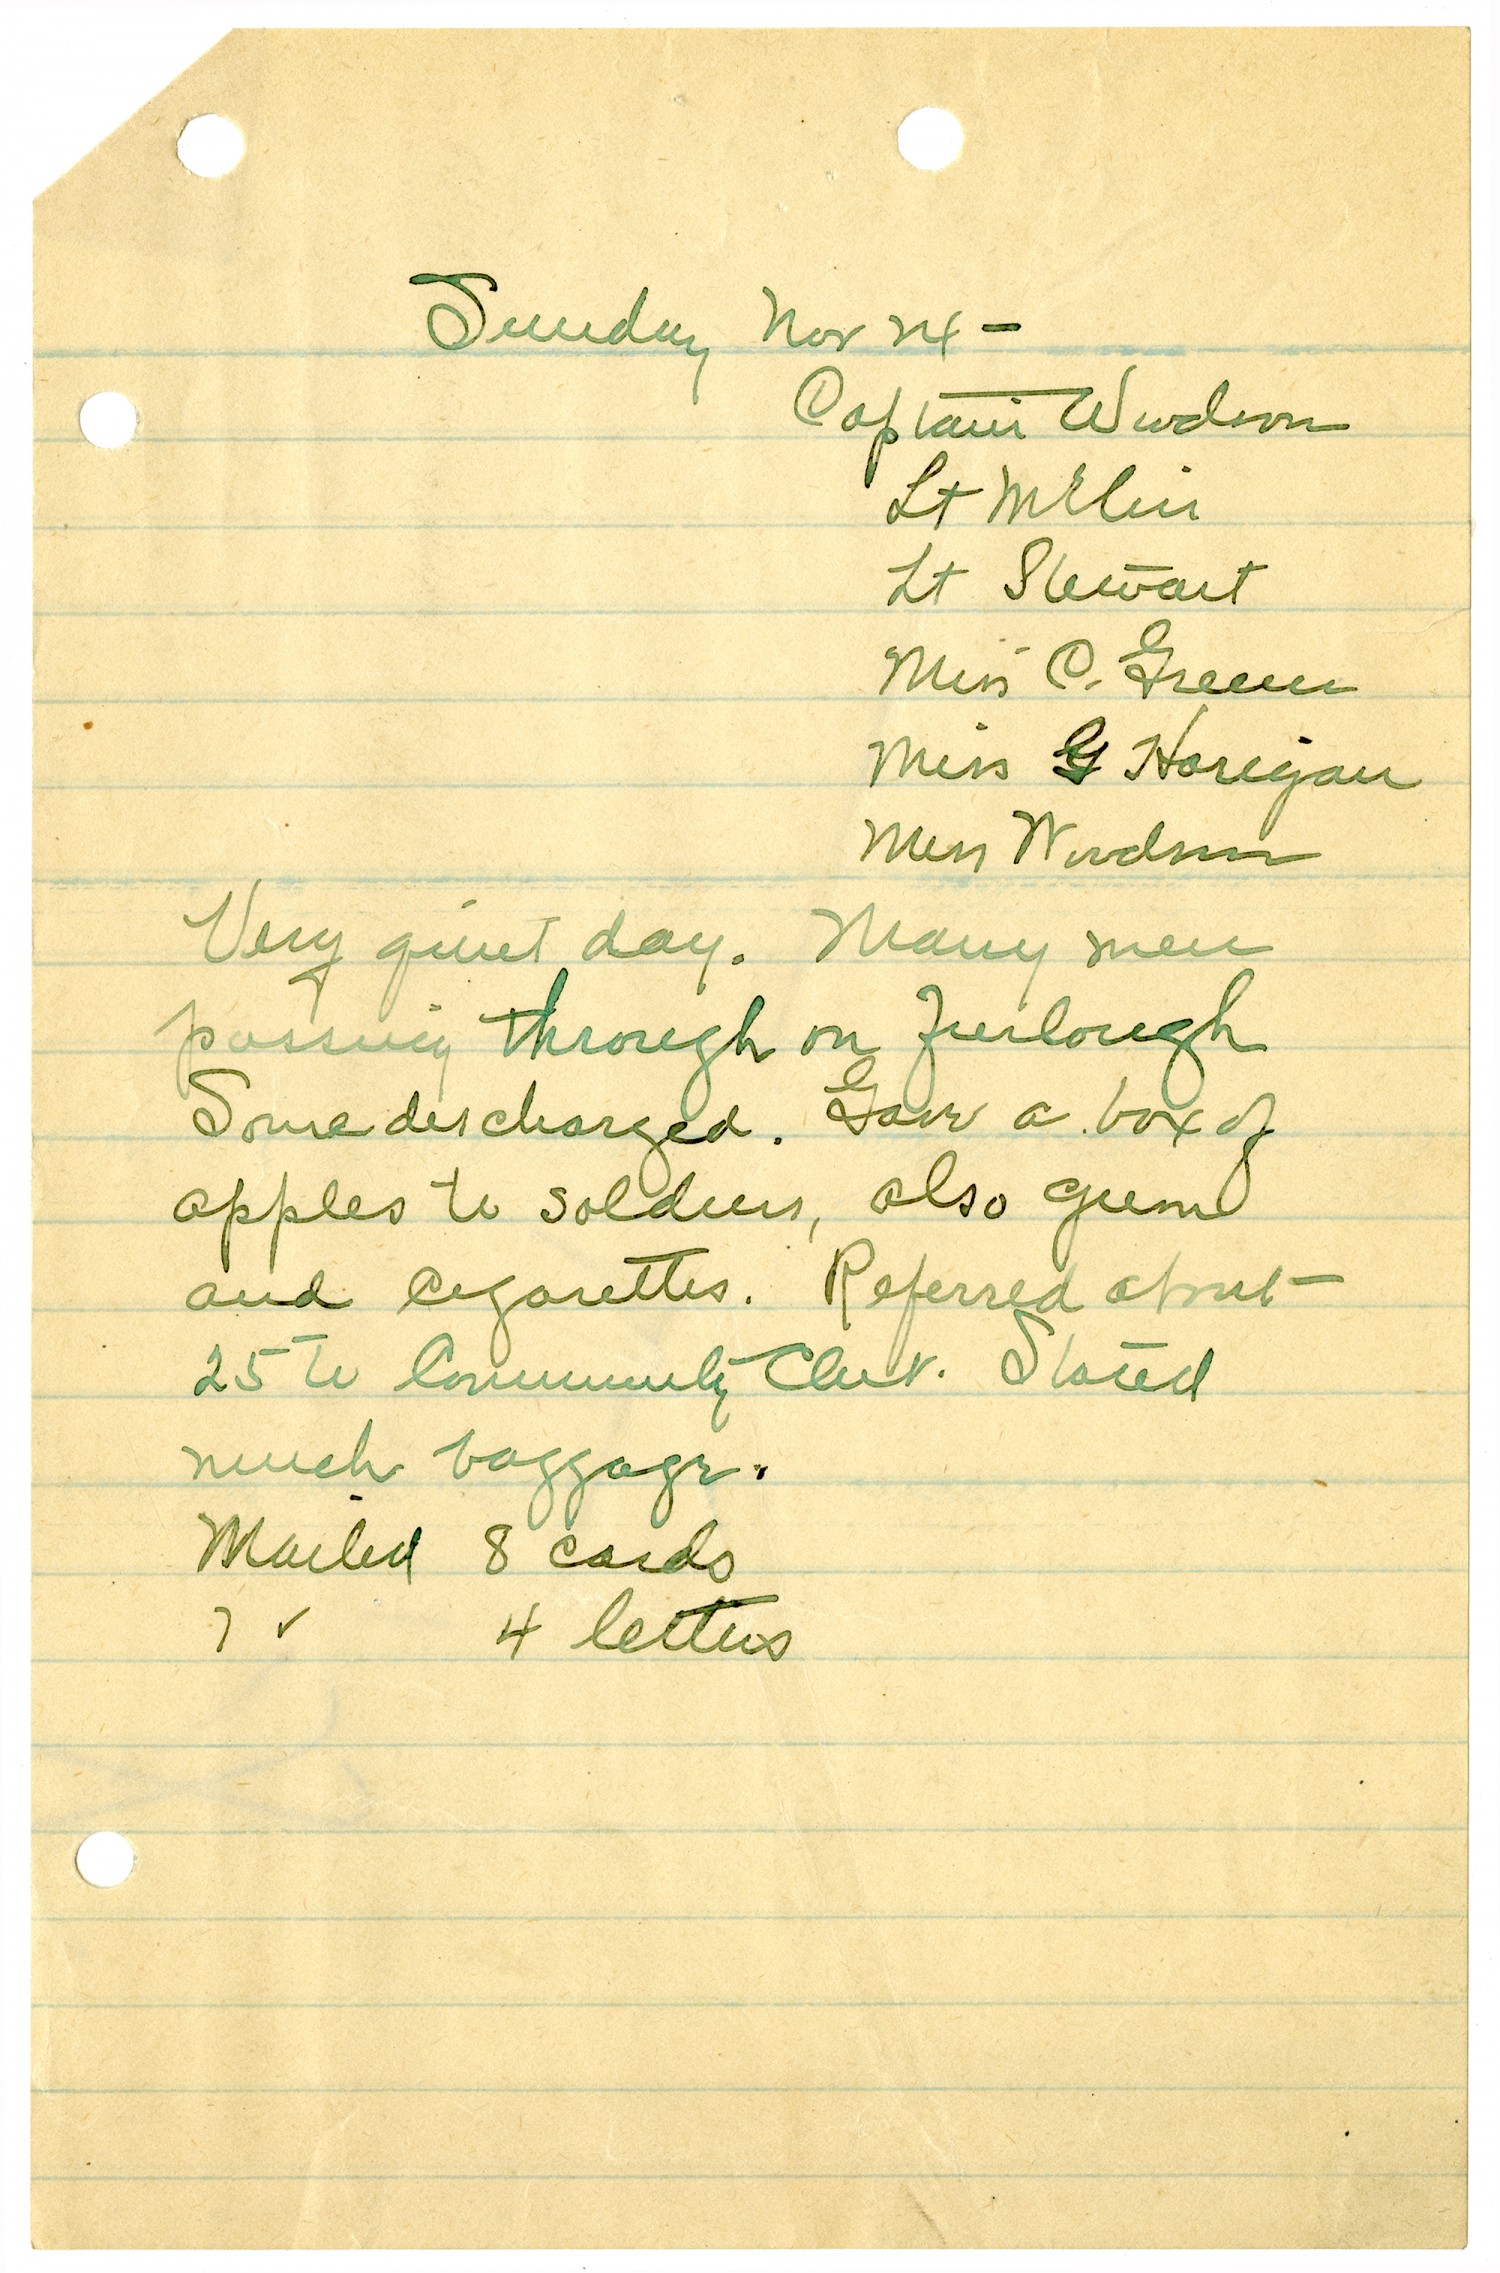 Sunday Nov 24 -
Captain Woodson
Lt McElin
Lt Stewart
Miss C. Green
Miss G Horigan
Miss Woodson
Very quiet day. Many men
passing through on furlough
Some discharged. Gave a box of
apples to soldiers, also gum
and cigarettes. Referred about
25 to Community Club. Stored
much baggage.
Mailed 8 cards
4 letters